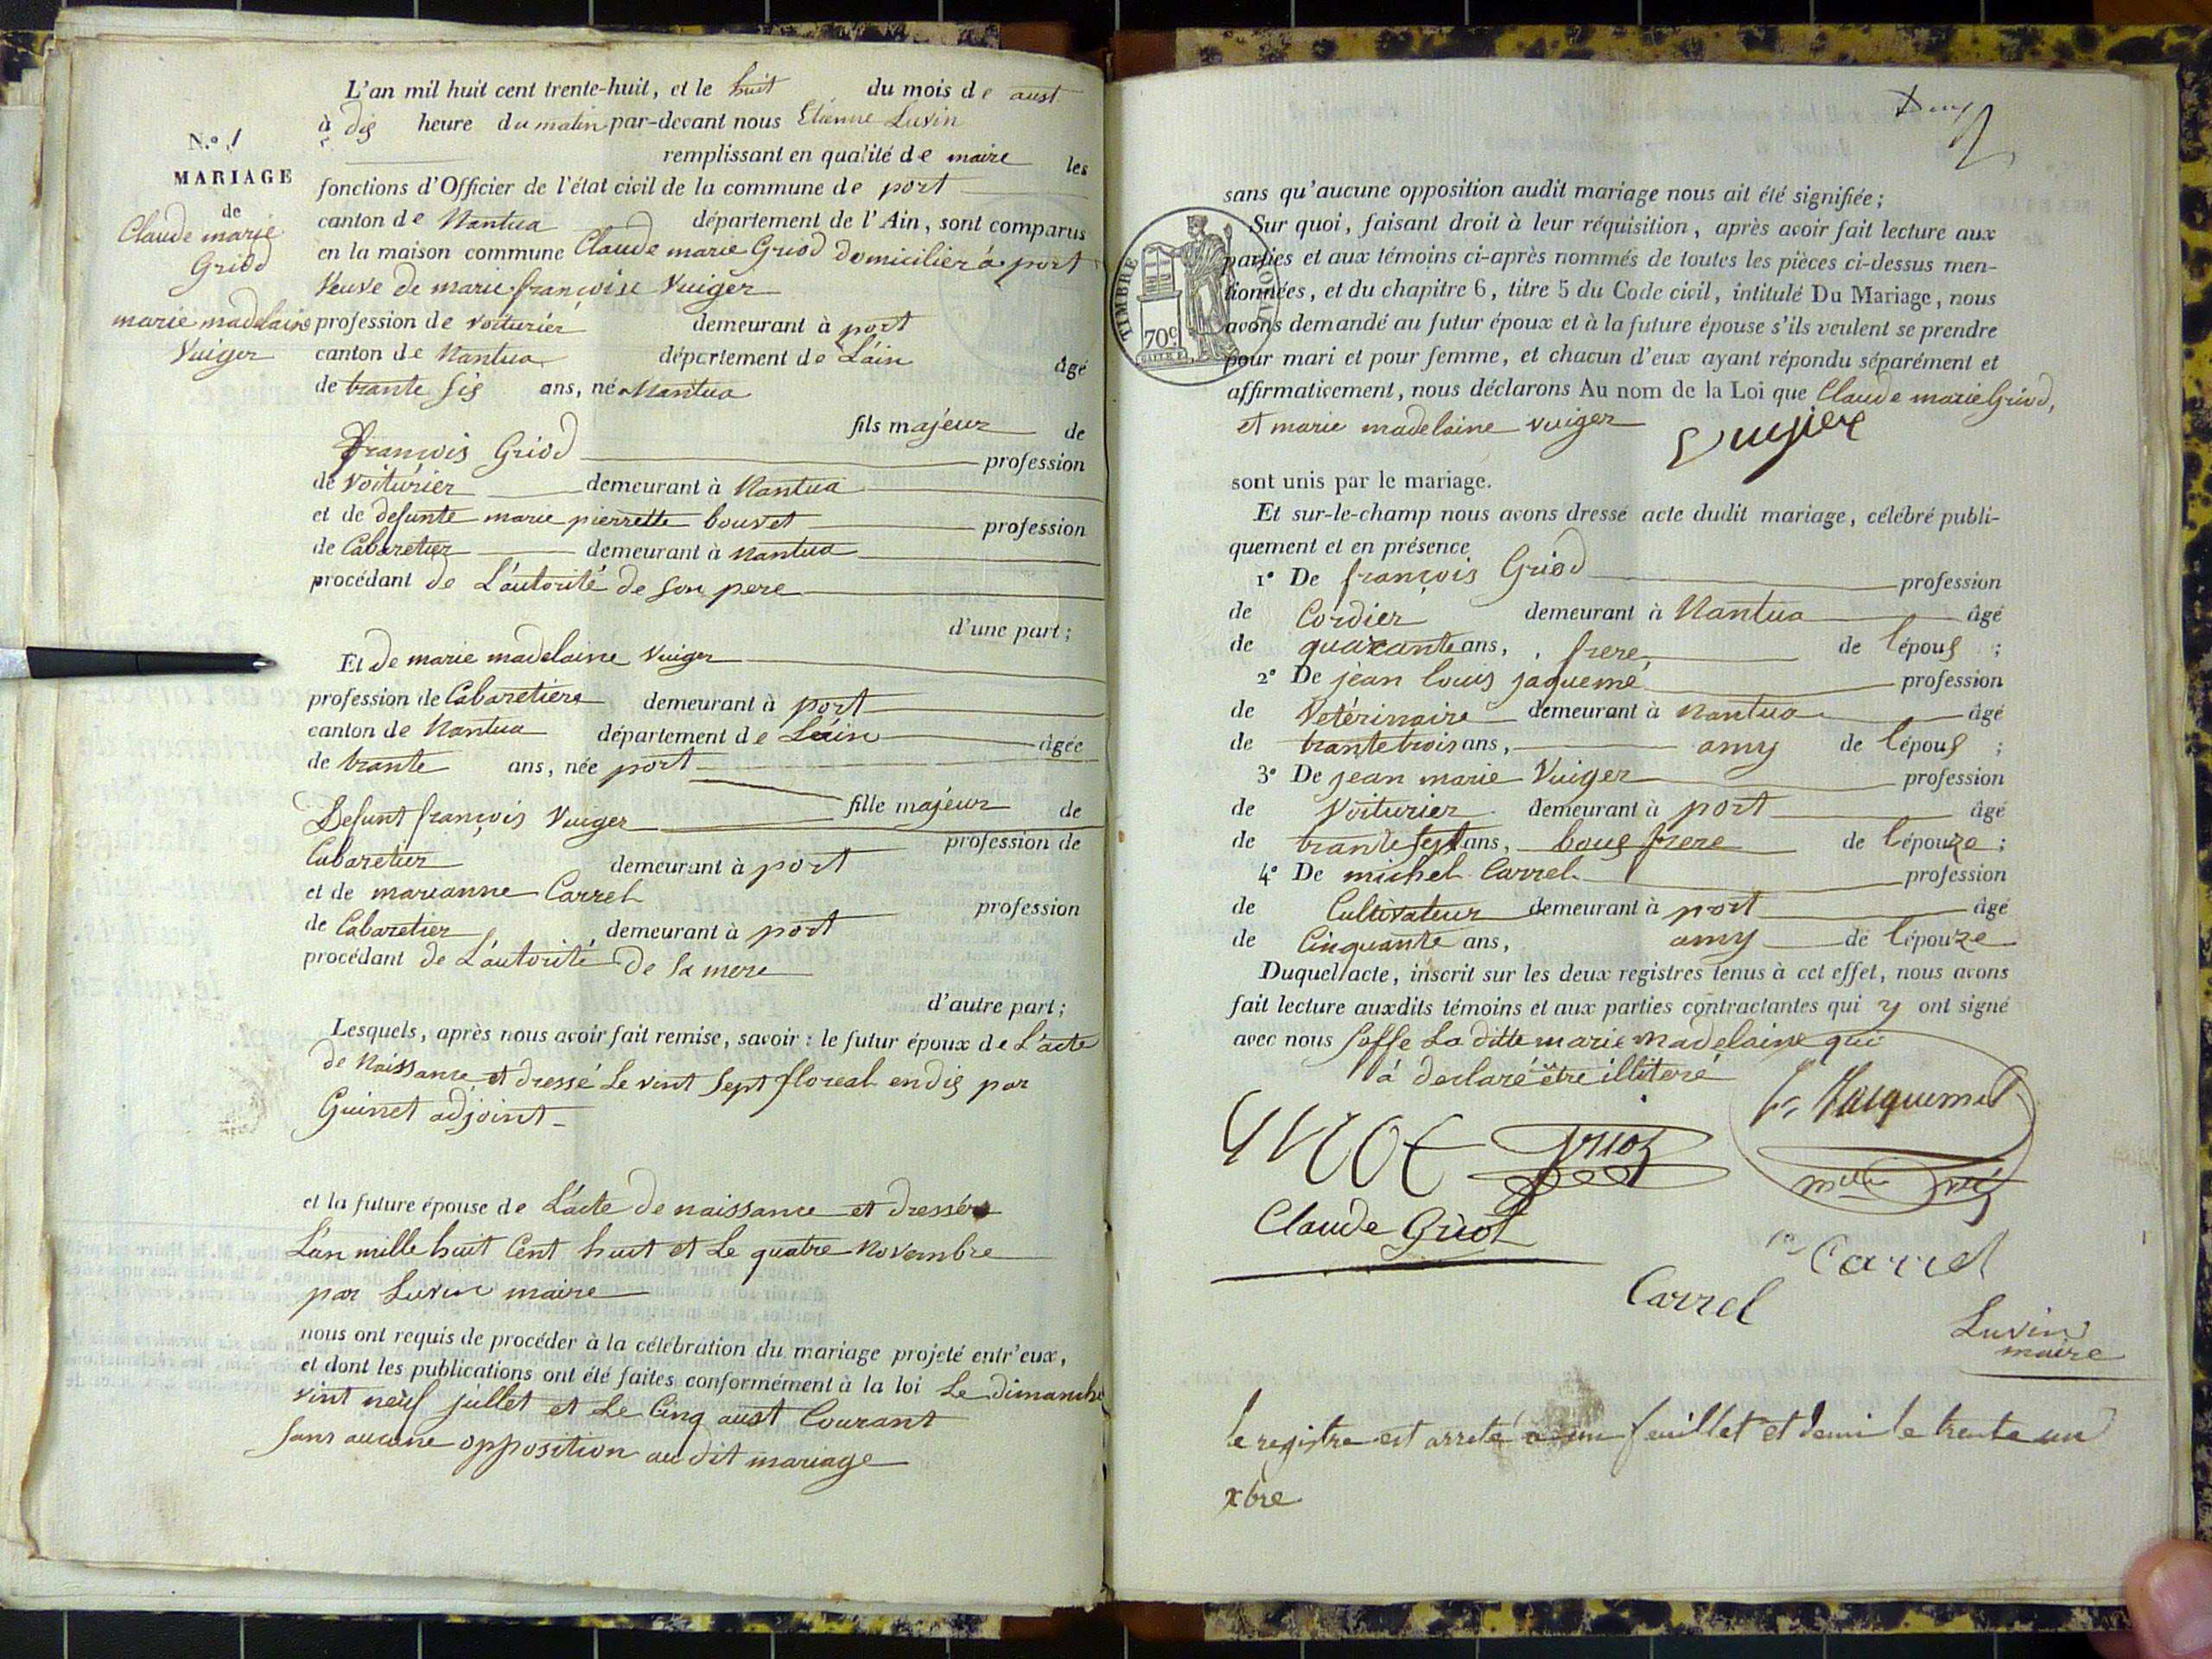 N.o 1
MARIAGE
de
Claude marie
Griod
marie madelaine
Vuiger
L'an mil huit cent trente-huit, et le huit du mois de aust
à dis heure du matin par-devant nous Etienne Luvin
remplissant en qualité de maire les
fonctions d'Officier de l'état civil de la commune de port
canton de Nantua département de l'Ain, sont comparus
en la maison commune Claude marie Griod domicilier à port
Veuve de marie françoise Vuiger
profession de voiturier demeurant à port
canton de Nantua département de L'ain âgé
de trante sis ans, né a Nantua
fils majeur de
françois Griod profession
de voiturier demeurant à Nantua
et de defunte marie pierrette bouvet profession
de Cabaretier demeurant à Nantua
procédant de L'autorité de son pere
d'une part;
Et de marie madelaine Vuiger
profession de Cabaretiere demeurant à port
canton de Nantua département de L'ain âgée
de trante ans, née port
fille majeur de
Defunt françois Vuiger profession de
Cabaretier demeurant à port
et de marianne Carrel profession
de Cabaretier demeurant à port
procédant de L'autorité de sa mere
d'autre part;
Lesquels, après nous avoir fait remise, savoir: le futur époux de L'acte
de Naissance et dressé Le vint sept floreal en dis par
Guinet adjoint
et la future épouse de L'acte de naissance et dressé
L'an mille huit Cent huit et Le quatre Novembre
par Luvin maire
nous ont requis de procéder à la célébration du mariage projeté entr'eux,
et dont les publications ont été faites conformément à la loi Le dimanche
vint neuf jullet et Le Cinq aust Courant
sans aucune opposition au dit mariage
TIMBRE ROYAL
70c
sans qu'aucune opposition audit mariage nous ait été signifiée;
Sur quoi, faisant droit à leur réquisition, après avoir fait lecture aux
parties et aux témoins ci-après nommés de toutes les pièces ci-dessus men-
tionnées, et du chapitre 6, titre 5 du Code civil, intitulé Du Mariage, nous
avons demandé au futur époux et à la future épouse s'ils veulent se prendre
pour mari et pour femme, et chacun d'eux ayant répondu séparément et
affirmativement, nous déclarons Au nom de la Loi que Claude marie Griod,
et marie madelaine vuiger
sont unis par le mariage.
Et sur-le-champ nous avons dressé acte dudit mariage, célébré publi-
quement et en présence
1o De françois Griod profession
de Cordier demeurant à Nantua âgé
de quarante ans, frere de l'épous;
2o De jean louis jaquemé profession
de Vetérinaire demeurant à Nantua âgé
de trante trois ans, amy de l'épous;
3o De jean marie Vuiger profession
de Voiturier demeurant à port âgé
de trante sept ans, bous frere de l'épouze;
4o De michel Carrel profession
de Cultivateur demeurant à port âgé
de Cinquante ans, amy de l'épouze
Duquel acte, inscrit sur les deux registres tenus à cet effet, nous avons
fait lecture auxdits témoins et aux parties contractantes qui y ont signé
avec nous soffe La ditte marie Madelaine qui
à declaré être illiteré
Griot
Jacquemet
Claude Griot
Carrel
Carrel
Luvin
maire
le registre est arreté à un feuillet et demi le trente un
xbre